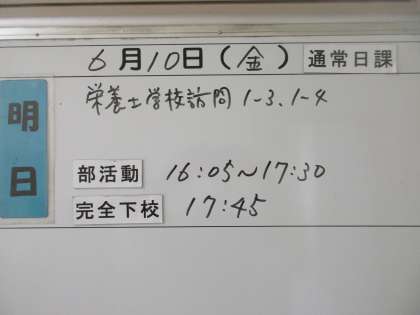 6月10日(金) 通常日課
明日
栄養士学校訪問 1-3、1-4
部活動 16:05~17:30
完全下校 17:45